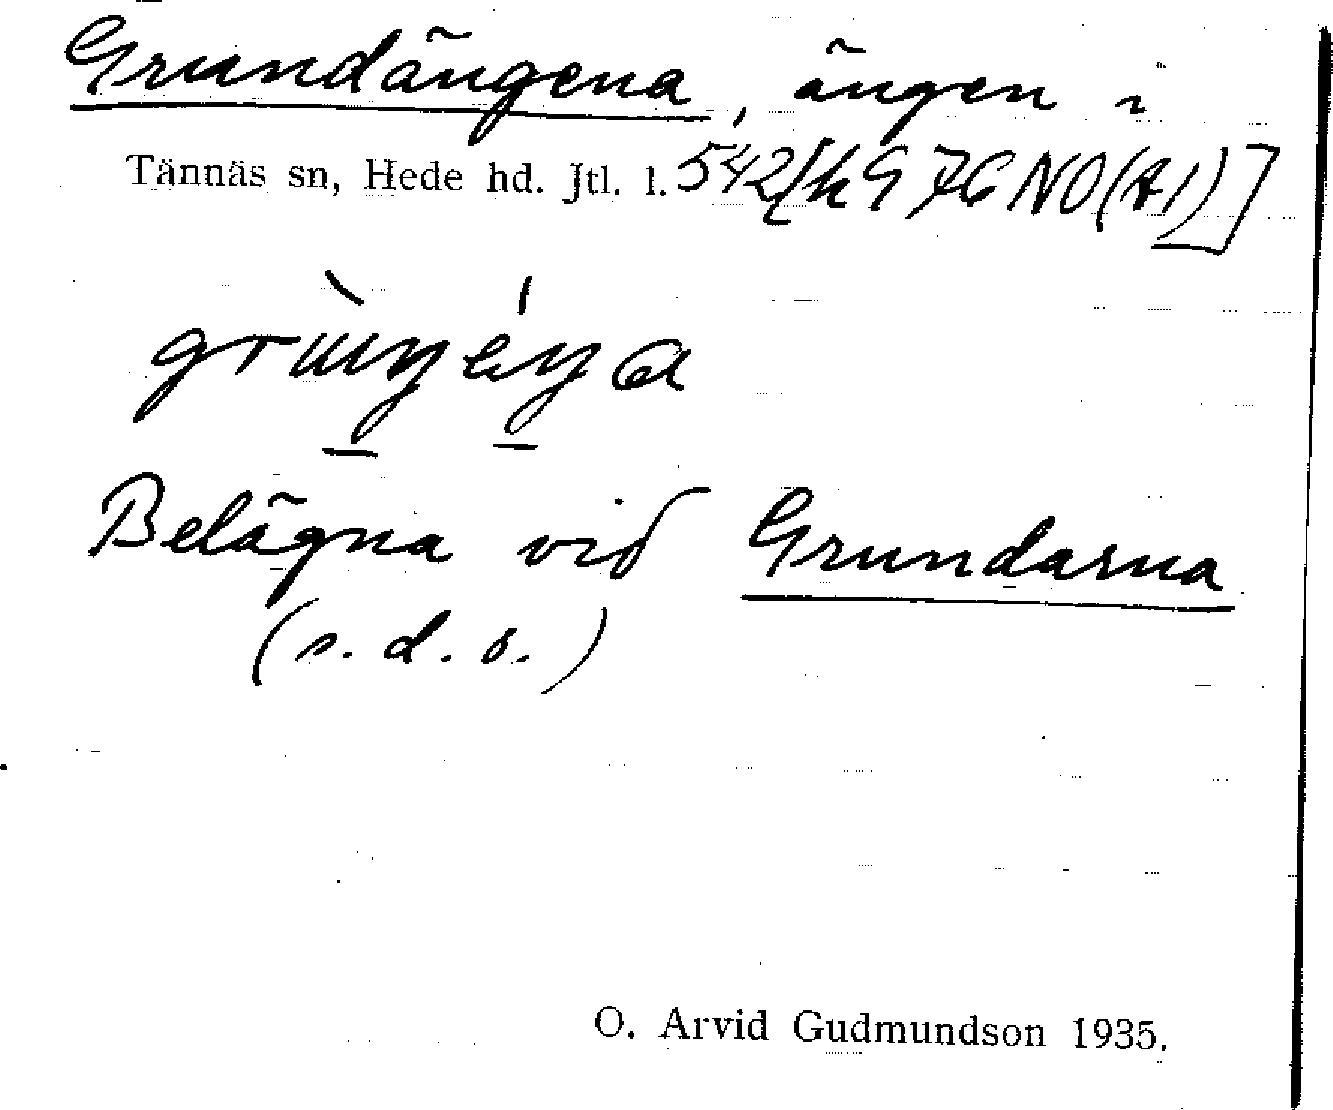 Grundängena, ängen i
Tännäs sn, Hede hd. Jtl. l. 542[h976NO(A1)]
Belägna vid Grundarna
(s. d. o.)
O. Arvid Gudmundson 1935.